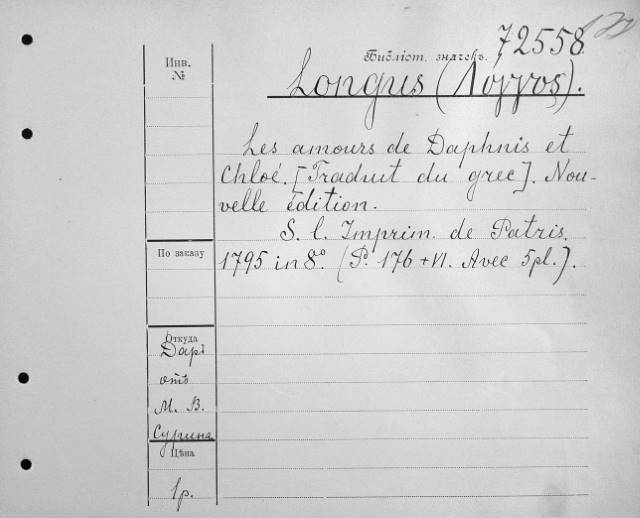 72558
Инв.
№
Библіот. значекъ.
Longus (Λογγος).
Les amours de Daphnis et
Chloé. [Traduit du grec]. Nou-
velle édition.
S. l. Imprim. de Patris.
1795 in 8°. (P. 176 + VI. Avec 5 pl.].
По заказу
Откуда
Даръ
отъ
М. В.
Сурина
Цѣна
1р.